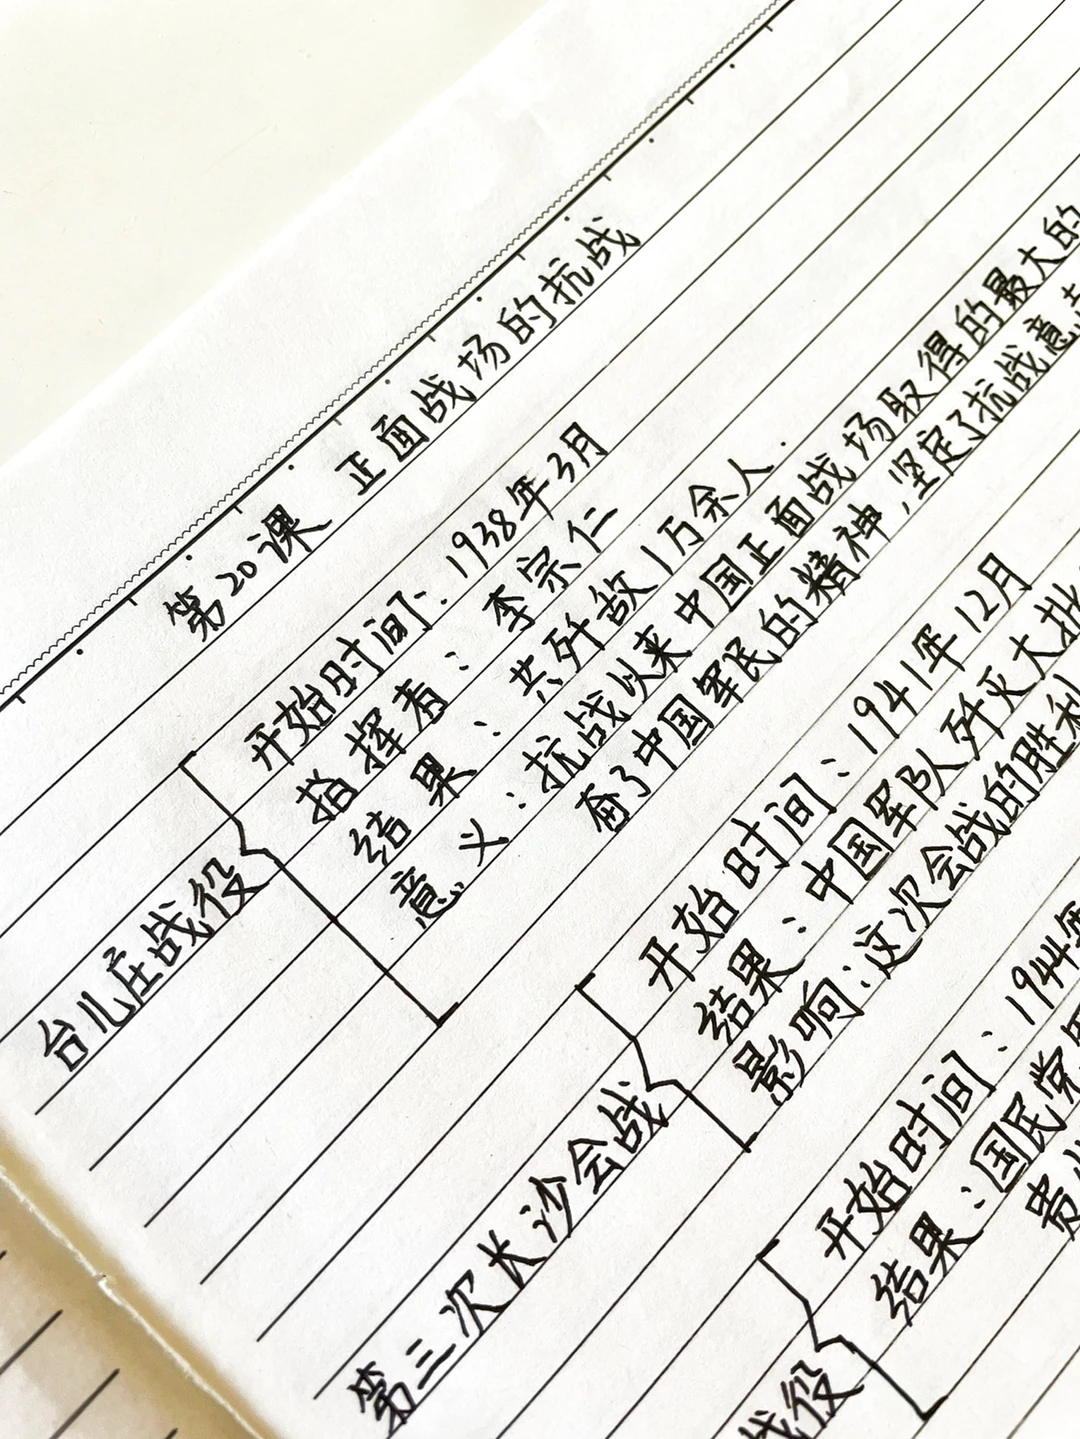 第20课 正面战场的抗战
开始时间：1938年3月
指挥者：李宗仁
结果：共歼敌1万余人.
意义：抗战以来中国正面战场取得的最大的
奋了中国军民的精神，坚定了抗战意志
台儿庄战役
开始时间：1941年12月
结果：中国军队歼灭大批
影响：这次会战的胜利
第三次长沙会战
开始时间：1944年
结果：国民党
贵
战役